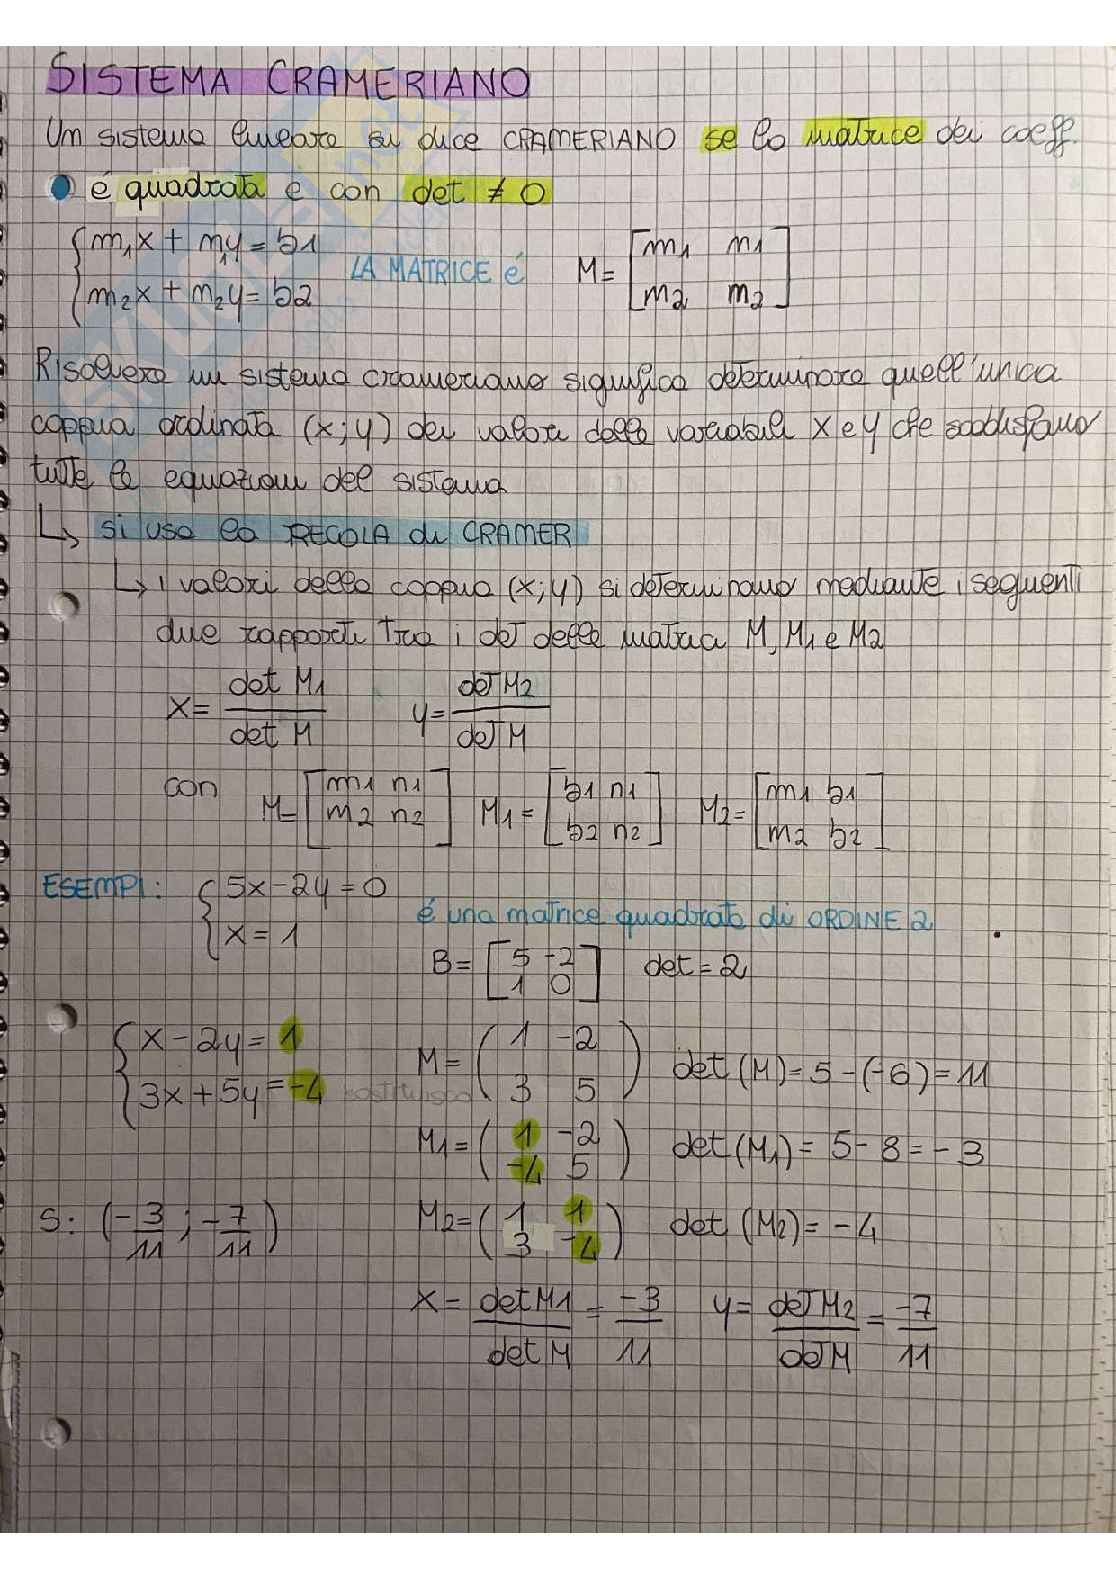 SISTEMA CRAMERIANO
Un sistema lineare si dice CRAMERIANO se la matrice dei coeff.
è quadrata e con det ≠ 0
{ m1x + n1y = b1
{ m2x + n2y = b2
LA MATRICE é M = [ m1 n1
m2 n2 ]
Risolvere un sistema crameriano significa determinare quell'unica
coppia ordinata (x; y) dei valori delle variabili x e y che soddisfano
tutte le equazioni del sistema
↳ si usa la REGOLA di CRAMER
↳ i valori della coppia (x; y) si determinano mediante i seguenti
due rapporti tra i det delle matrici M, M1 e M2
x = det M1 / det M y = det M2 / det M
con M = [ m1 n1
m2 n2 ] M1 = [ b1 n1
b2 n2 ] M2 = [ m1 b1
m2 b2 ]
ESEMPI: { 5x - 2y = 0
{ x = 1
é una matrice quadrata di ORDINE 2
B = [ 5 -2
1 0 ] det = 2
{ x - 2y = 1
{ 3x + 5y = -4
M = ( 1 -2
3 5 ) det (M) = 5 - (-6) = 11
M1 = ( 1 -2
-4 5 ) det (M1) = 5 - 8 = -3
S: (-3/11 ; -7/11)
M2 = ( 1 1
3 -4 ) det (M2) = -4
x = det M1 / det M = -3 / 11 y = det M2 / det M = -7 / 11